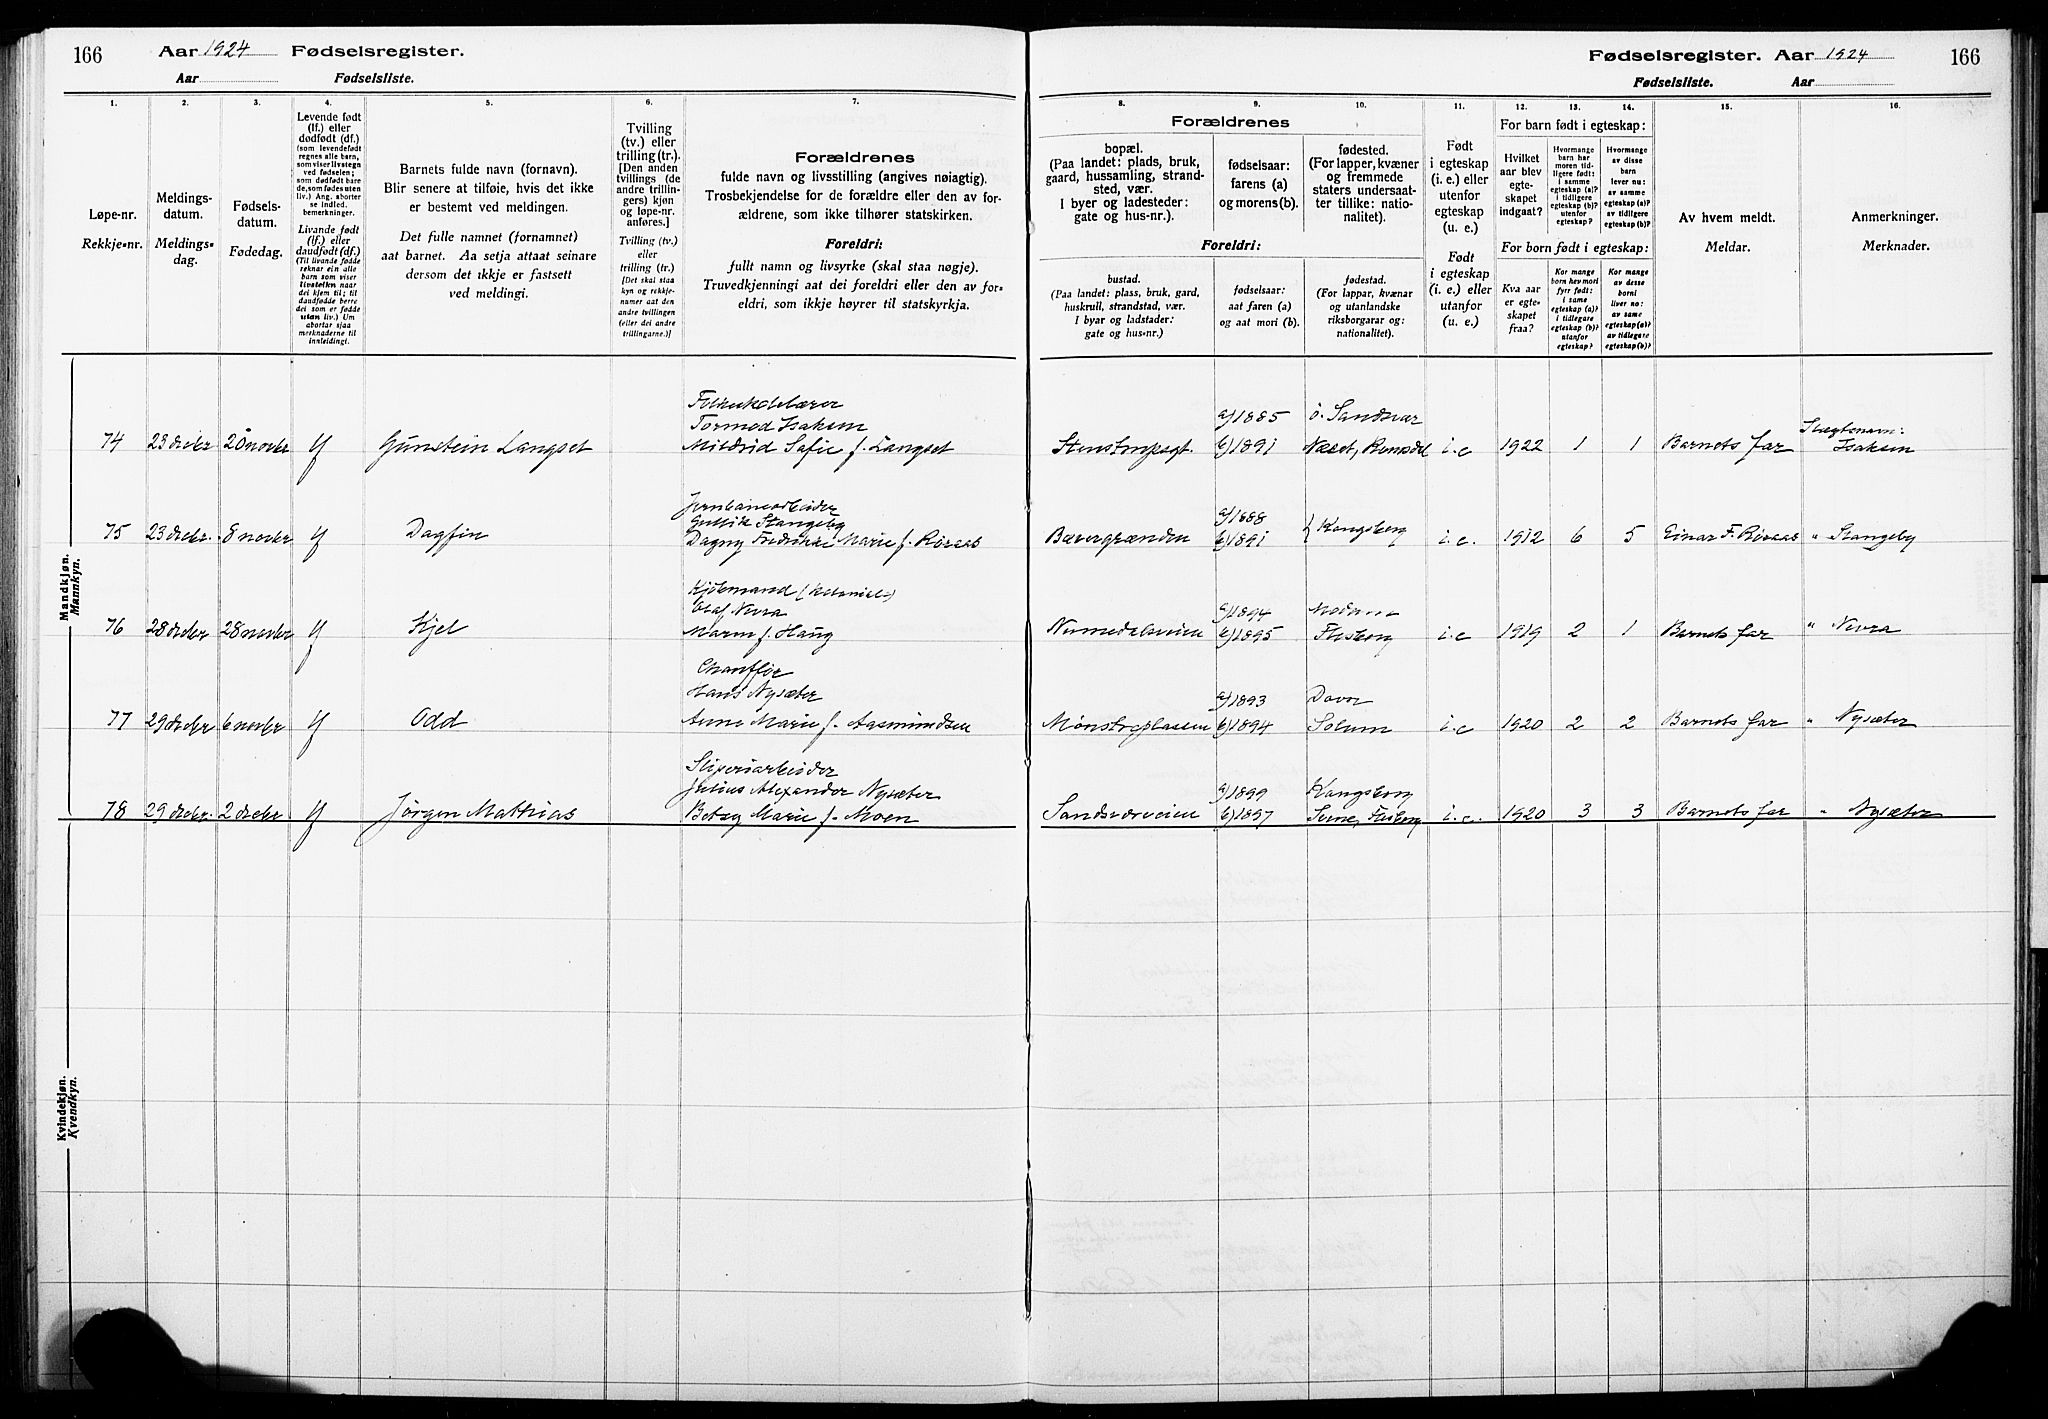 166
Aar 1924 Fødselsregister.
Aar
Fødselsliste.
1.
Løpe-nr.
Rekkje-nr.
2.
Meldings-
datum.
Meldings-
dag.
3.
Fødsels-
datum.
Fødedag.
4.
Levende født
(lf.) eller
dødfødt (df.)
(som levendefødt
regnes alle barn,
som viser livstegn
ved fødselen;
som dødfødt bare
de, som fødes uten
liv.) Ang. aborter
se indled.
bemerkninger.
Livande født
(lf.) eller
daudfødt (df.)
(Til livande fødde
reknar ein alle
barn som viser
livsteikn naar
dei kjem til; til
daudfødde berre
dei som er fødde
utan liv.) Um
abortar sjaa
merknaderne til
innleidingi.
5.
Barnets fulde navn (fornavn).
Blir senere at tilføie, hvis det ikke
er bestemt ved meldingen.
Det fulle namnet (fornamnet)
aat barnet. Aa setja attaat seinare
dersom det ikkje er fastsett
ved meldingi.
6.
Tvilling
(tv.) eller
trilling (tr.).
[Den anden
tvillings (de
andre trillin-
gers) kjøn
og løpe-nr.
anføres.]
Tvilling (tv.)
eller
trilling (tr.)
[Det skal staa
kyn og rekkje-
numer aat den
andre tvillingen
(eller dei andre
trillingarne.)]
7.
Forældrenes
fulde navn og livsstilling (angives nøiagtig).
Trosbekjendelse for de forældre eller den av for-
ældrene, som ikke tilhører statskirken.
Foreldri:
fullt namn og livsyrke (skal staa nøgje).
Truvedkjenningi aat dei foreldri eller den av for-
eldri, som ikkje høyrer til statskyrkja.
Mandkjøn.
Mannkyn.
74 23 decbr 20 novbr lf Gunstein Langset
Tormod Isaksen
Mildrid Sofie f. Langset
75 23 decbr. 8 novbr lf Dagfin
Jernbanearbeider
Gullik Stangeby
Dagny Fredrikke Marie f. Røraas
76 28 decbr 28 novbr lf Kjel
Kjøbmand
Olaf Nevra
Maren f. Haug
77 29 decbr 6 novbr lf Odd
Chauffør
Hans Nysæter
Anne Marie f. Aasmundsen
78 29 decbr. 2 decbr lf Jørgen Mathias
Sliperiarbeider
Julius Alexander Nysæter
Betzy Marie f. Moen
Kvindekjøn.
Kvendkyn.
Fødselsregister. Aar 1924
166
Fødselsliste.
Aar
8.
Forældrenes
bopæl.
(Paa landet: plads, bruk,
gaard, hussamling, strand-
sted, vær.
I byer og ladesteder:
gate og hus-nr.).
Foreldri:
bustad.
(Paa landet: plass, bruk, gard,
huskrull, strandstad, vær.
I byar og ladstader:
gate og hus-nr.)
9.
fødselsaar:
farens (a)
og morens (b).
fødselsaar:
aat faren (a)
og aat mori (b).
10.
fødested.
(For lapper, kvæner
og fremmede
staters undersaat-
ter tillike: natio-
nalitet).
fødestad.
(For lappar, kvænar
og utanlandske
riksborgarar og:
nationalitet).
11.
Født
i egteskap
(i. e.) eller
utenfor
egteskap
(u. e.)
Født
i egteskap
(i. e.) eller
utanfor
(u. e.)
12.
For barn født i egteskap:
Hvilket
aar blev
egte-
skapet
indgaat?
For born født i egteskap:
Kva aar
er egte-
skapet
fraa?
13.
Hvormange
barn har
moren tid-
ligere født:
i samme
egteskap (a)?
i tidligere
egteskap (b)?
utenfor
egteskap?
Kor mange
born hev mori
fyrr født:
i same
egteskap (a)?
i tidlegare
egteskap (b)?
utanfor
egteskap?
14.
Hvormange
av disse
barn
lever nu:
av samme
egteskap (a)?
av tidligere
egteskap (b)?
Kor mange
av desse
borni
liver no:
av same
egteskap (a)?
av tidlegare
egteskap (b)?
15.
Av hvem meldt.
Meldar.
16.
Anmerkninger.
Merknader.
a) 1885 ö. Sandsvær
b) 1891 i.e 1922 1 1 Barnets far
Slegtsnavn:
Isaksen
Bævergrænden
a) 1888
b) 1891
} Kongsberg
i.e. 1912 6 5 Einar F. Røraas " Stangeby
Numedalsveien
a) 1894 Modum
b) 1895 Flesberg
i.e 1919 2 1 Barnets far " Nevra
Mønstreplassen
a) 1893
b) 1894 Solum
i.e 1920 2 2 Barnets far " Nysæter
Sandsværveien
a) 1899 Kongsberg
b) 1897 Svene, Flesberg
i.e. 1920 3 3 Barnets far " Nysæter